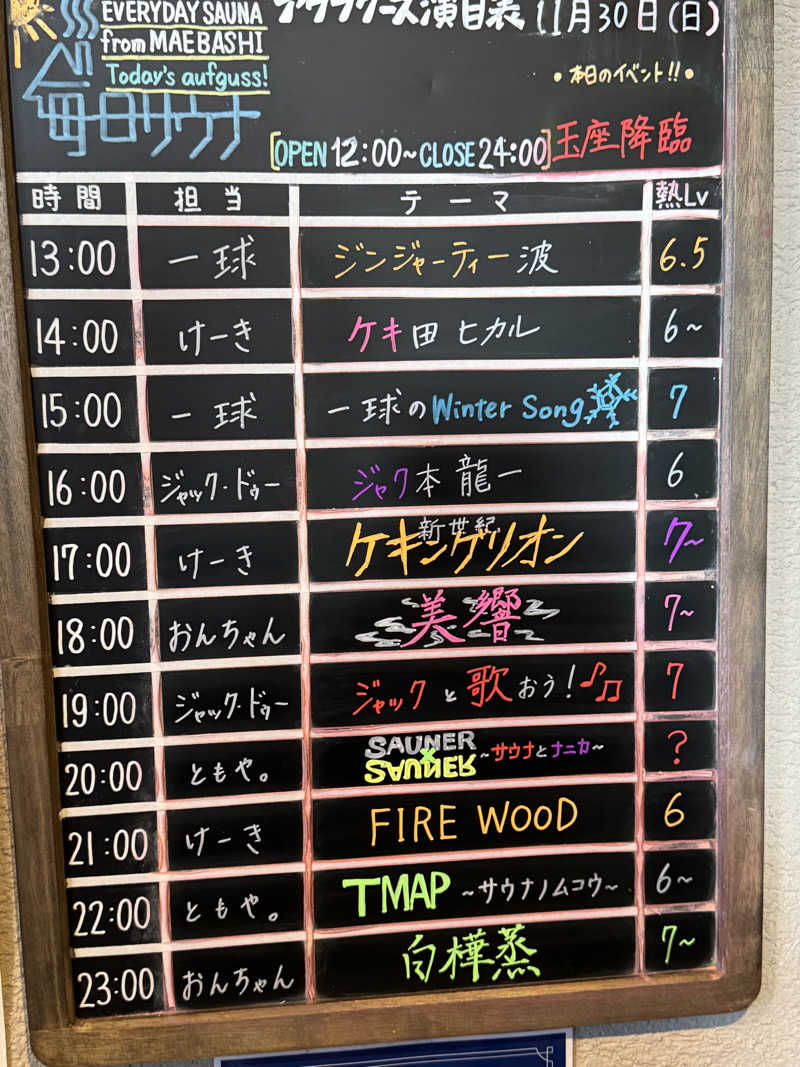 EVERYDAY SAUNA
from MAEBASHI
Today's aufguss!
毎日サウナ
アウフグース演目表 11月30日(日)
・本日のイベント!!・
[OPEN 12:00~CLOSE 24:00] 玉座降臨
時間 担当 テーマ 熱Lv
13:00 一球 ジンジャーティー波 6.5
14:00 けーき ケキ田ヒカル 6~
15:00 一球 一球のWinter Song 7
16:00 ジャック・ドゥー ジャク本龍一 6
17:00 けーき 新世紀 ケキングリオン 7~
18:00 おんちゃん 美響 7~
19:00 ジャック・ドゥー ジャックと歌おう!♪♫ 7
20:00 ともや。 SAUNER × SAUNER ~サウナとナニカ~ ?
21:00 けーき FIRE WOOD 6
22:00 ともや。 TMAP ~サウナノムコウ~ 6~
23:00 おんちゃん 白樺蒸 7~